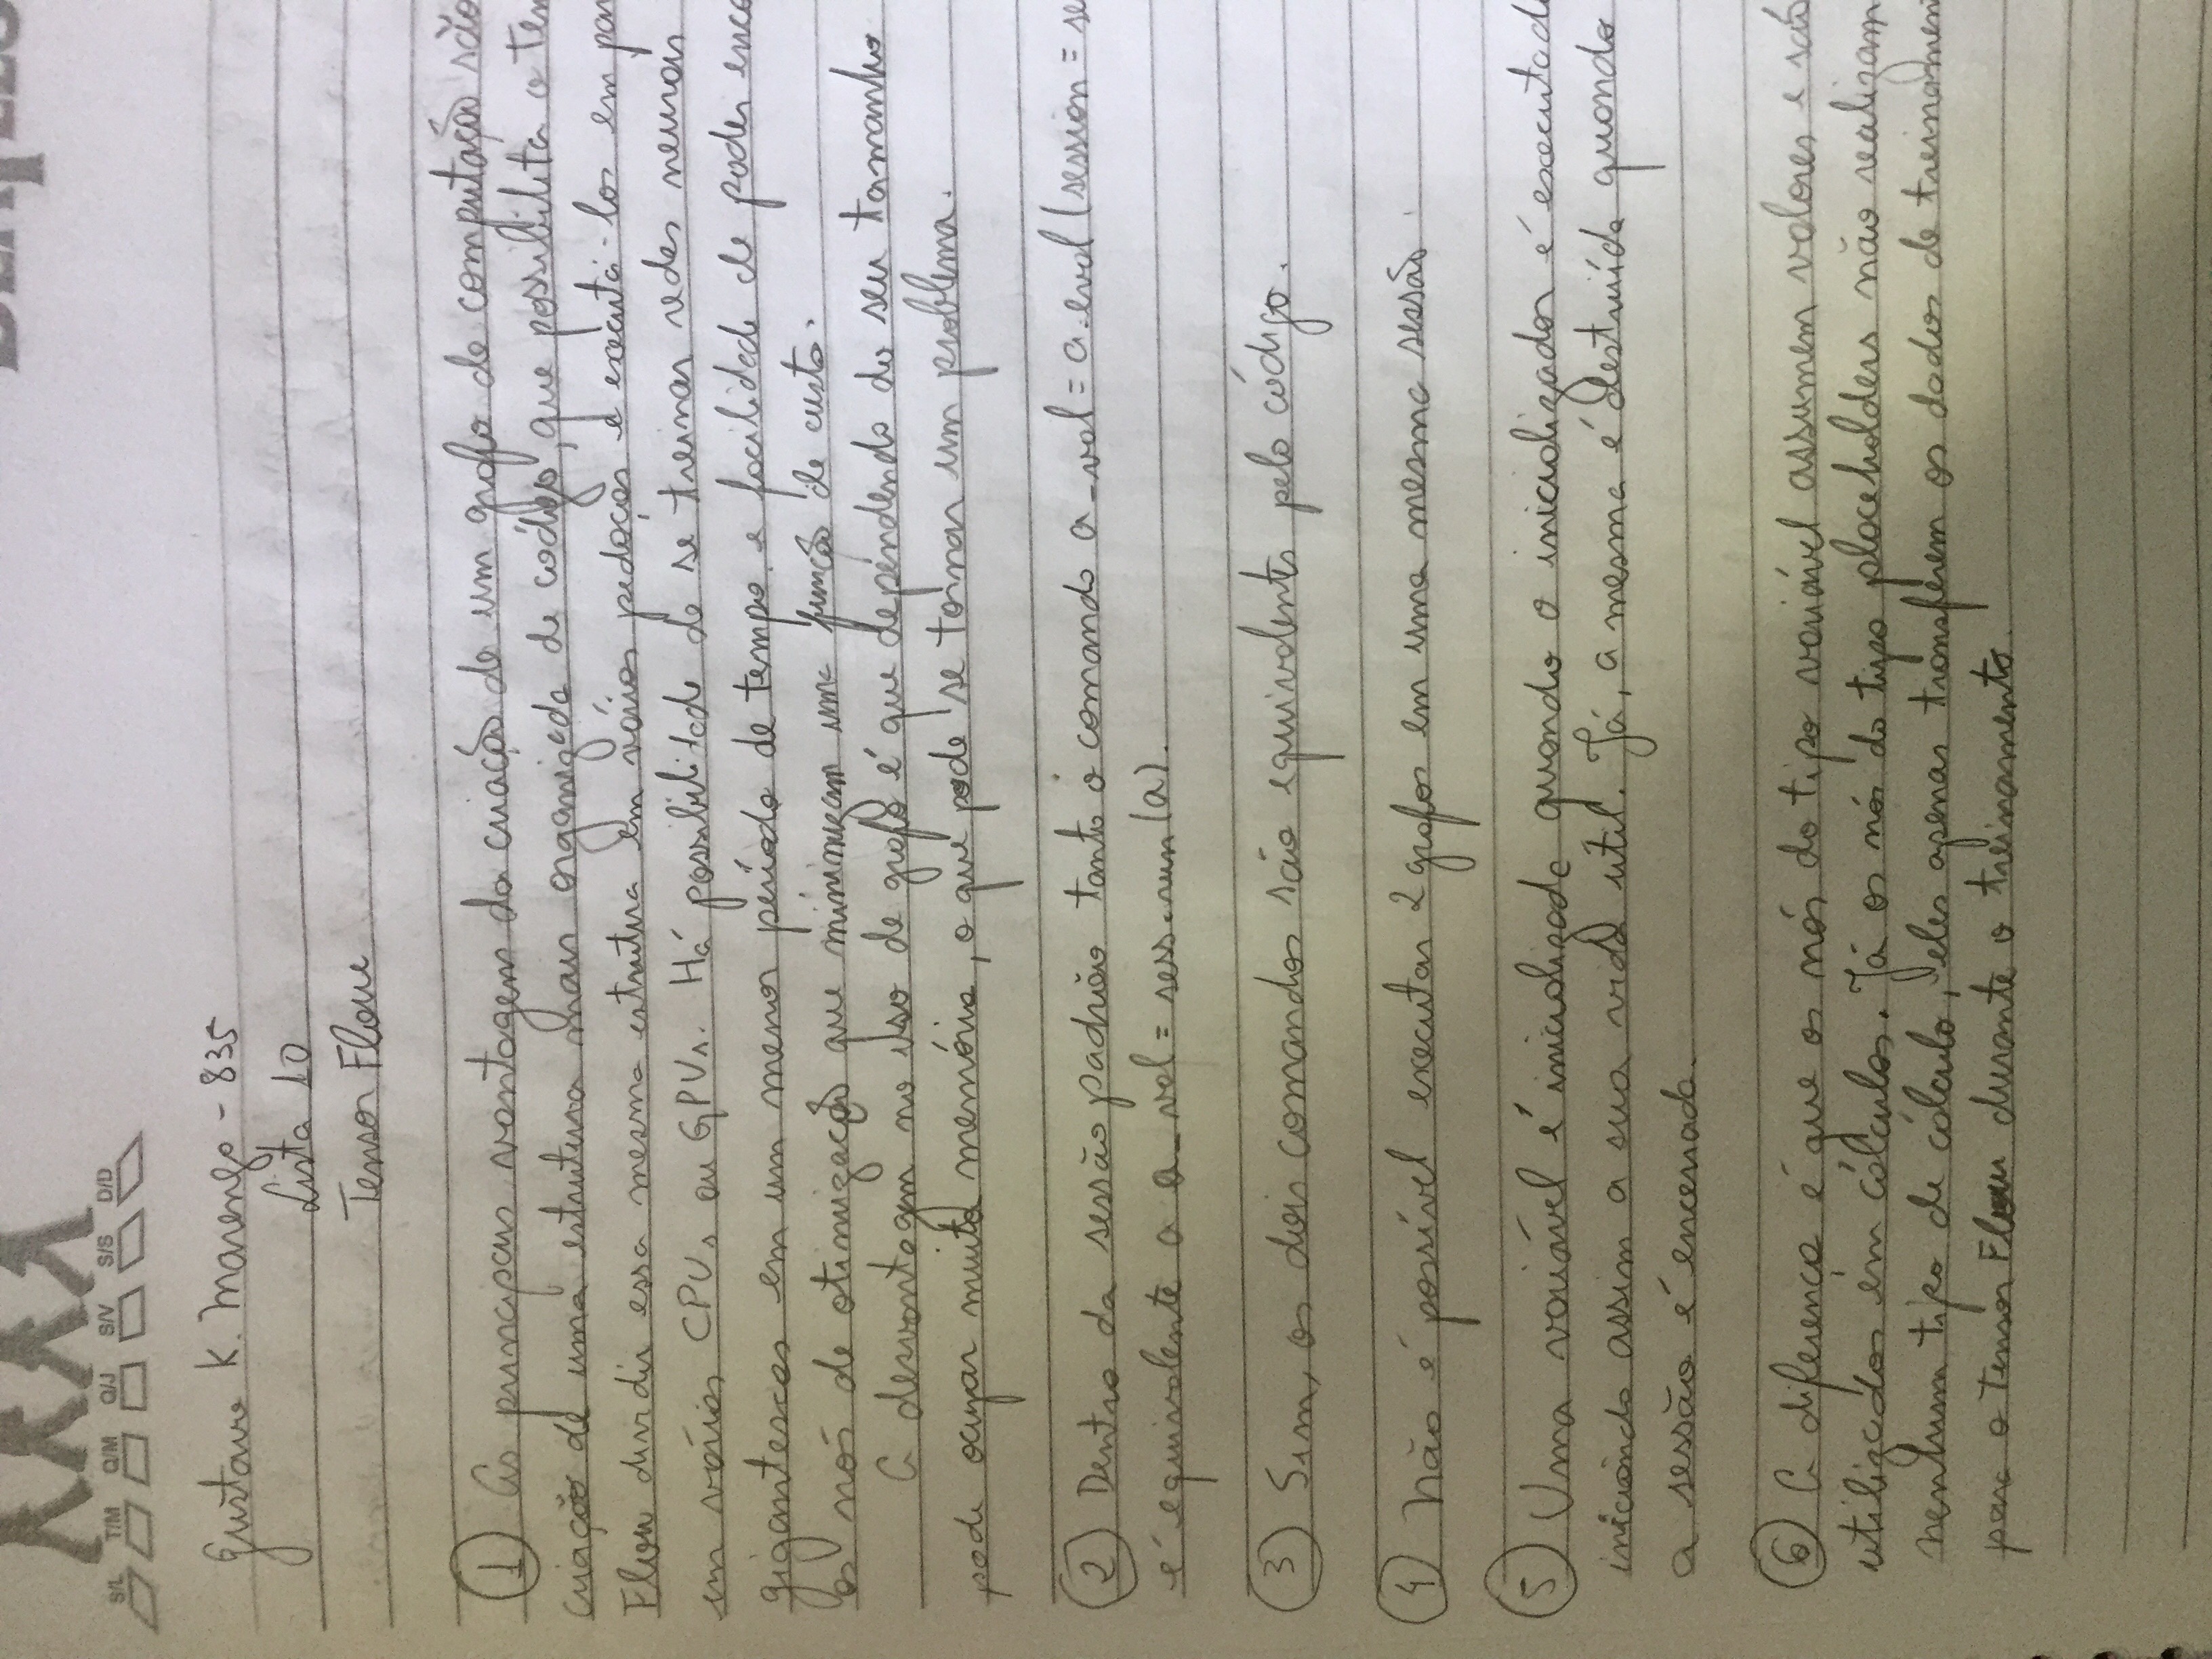 BEATLES
S/L T/M Q/M Q/J S/V S/S D/D
Gustavo K. Marengo - 835
Lista 10
Tensor Flow
① As principais vantagem da criação de um grafo de computação são
criação de uma estrutura mais organizada de código, que possibilita o Ten
Flow dividir essa mesma estrutura em vários pedaços e executá-los em par
em várias CPUs ou GPUs. Há possibilidade de se treinar redes neurais
gigantescas em um menor período de tempo e facilidade de poder enco
os nós de otimização que minimizam uma função de custo.
A desvantagem no uso de grafo é que dependendo do seu tamanho
pode ocupar muita memória, o que pode se tornar um problema.
② Dentro da sessão padrão tanto o comando a_val = a.eval (session = se
é equivalente a a_val = sess.run(a).
③ Sim, os dois comandos são equivalentes pelo código.
④ Não é possível executar 2 grafos em uma mesma sessão.
⑤ Uma variável é inicializada quando o inicializador é executad
iniciando assim a sua vida útil. Já, a mesma é destruída quando
a sessão é encerrada.
⑥ A diferença é que os nós do tipo variável assumem valores e são
utilizados em cálculos. Já os nós do tipo placeholders não realizam
nenhum tipo de cálculo, eles apenas transferem os dados de treinamen
para o Tensor Flow durante o treinamento.